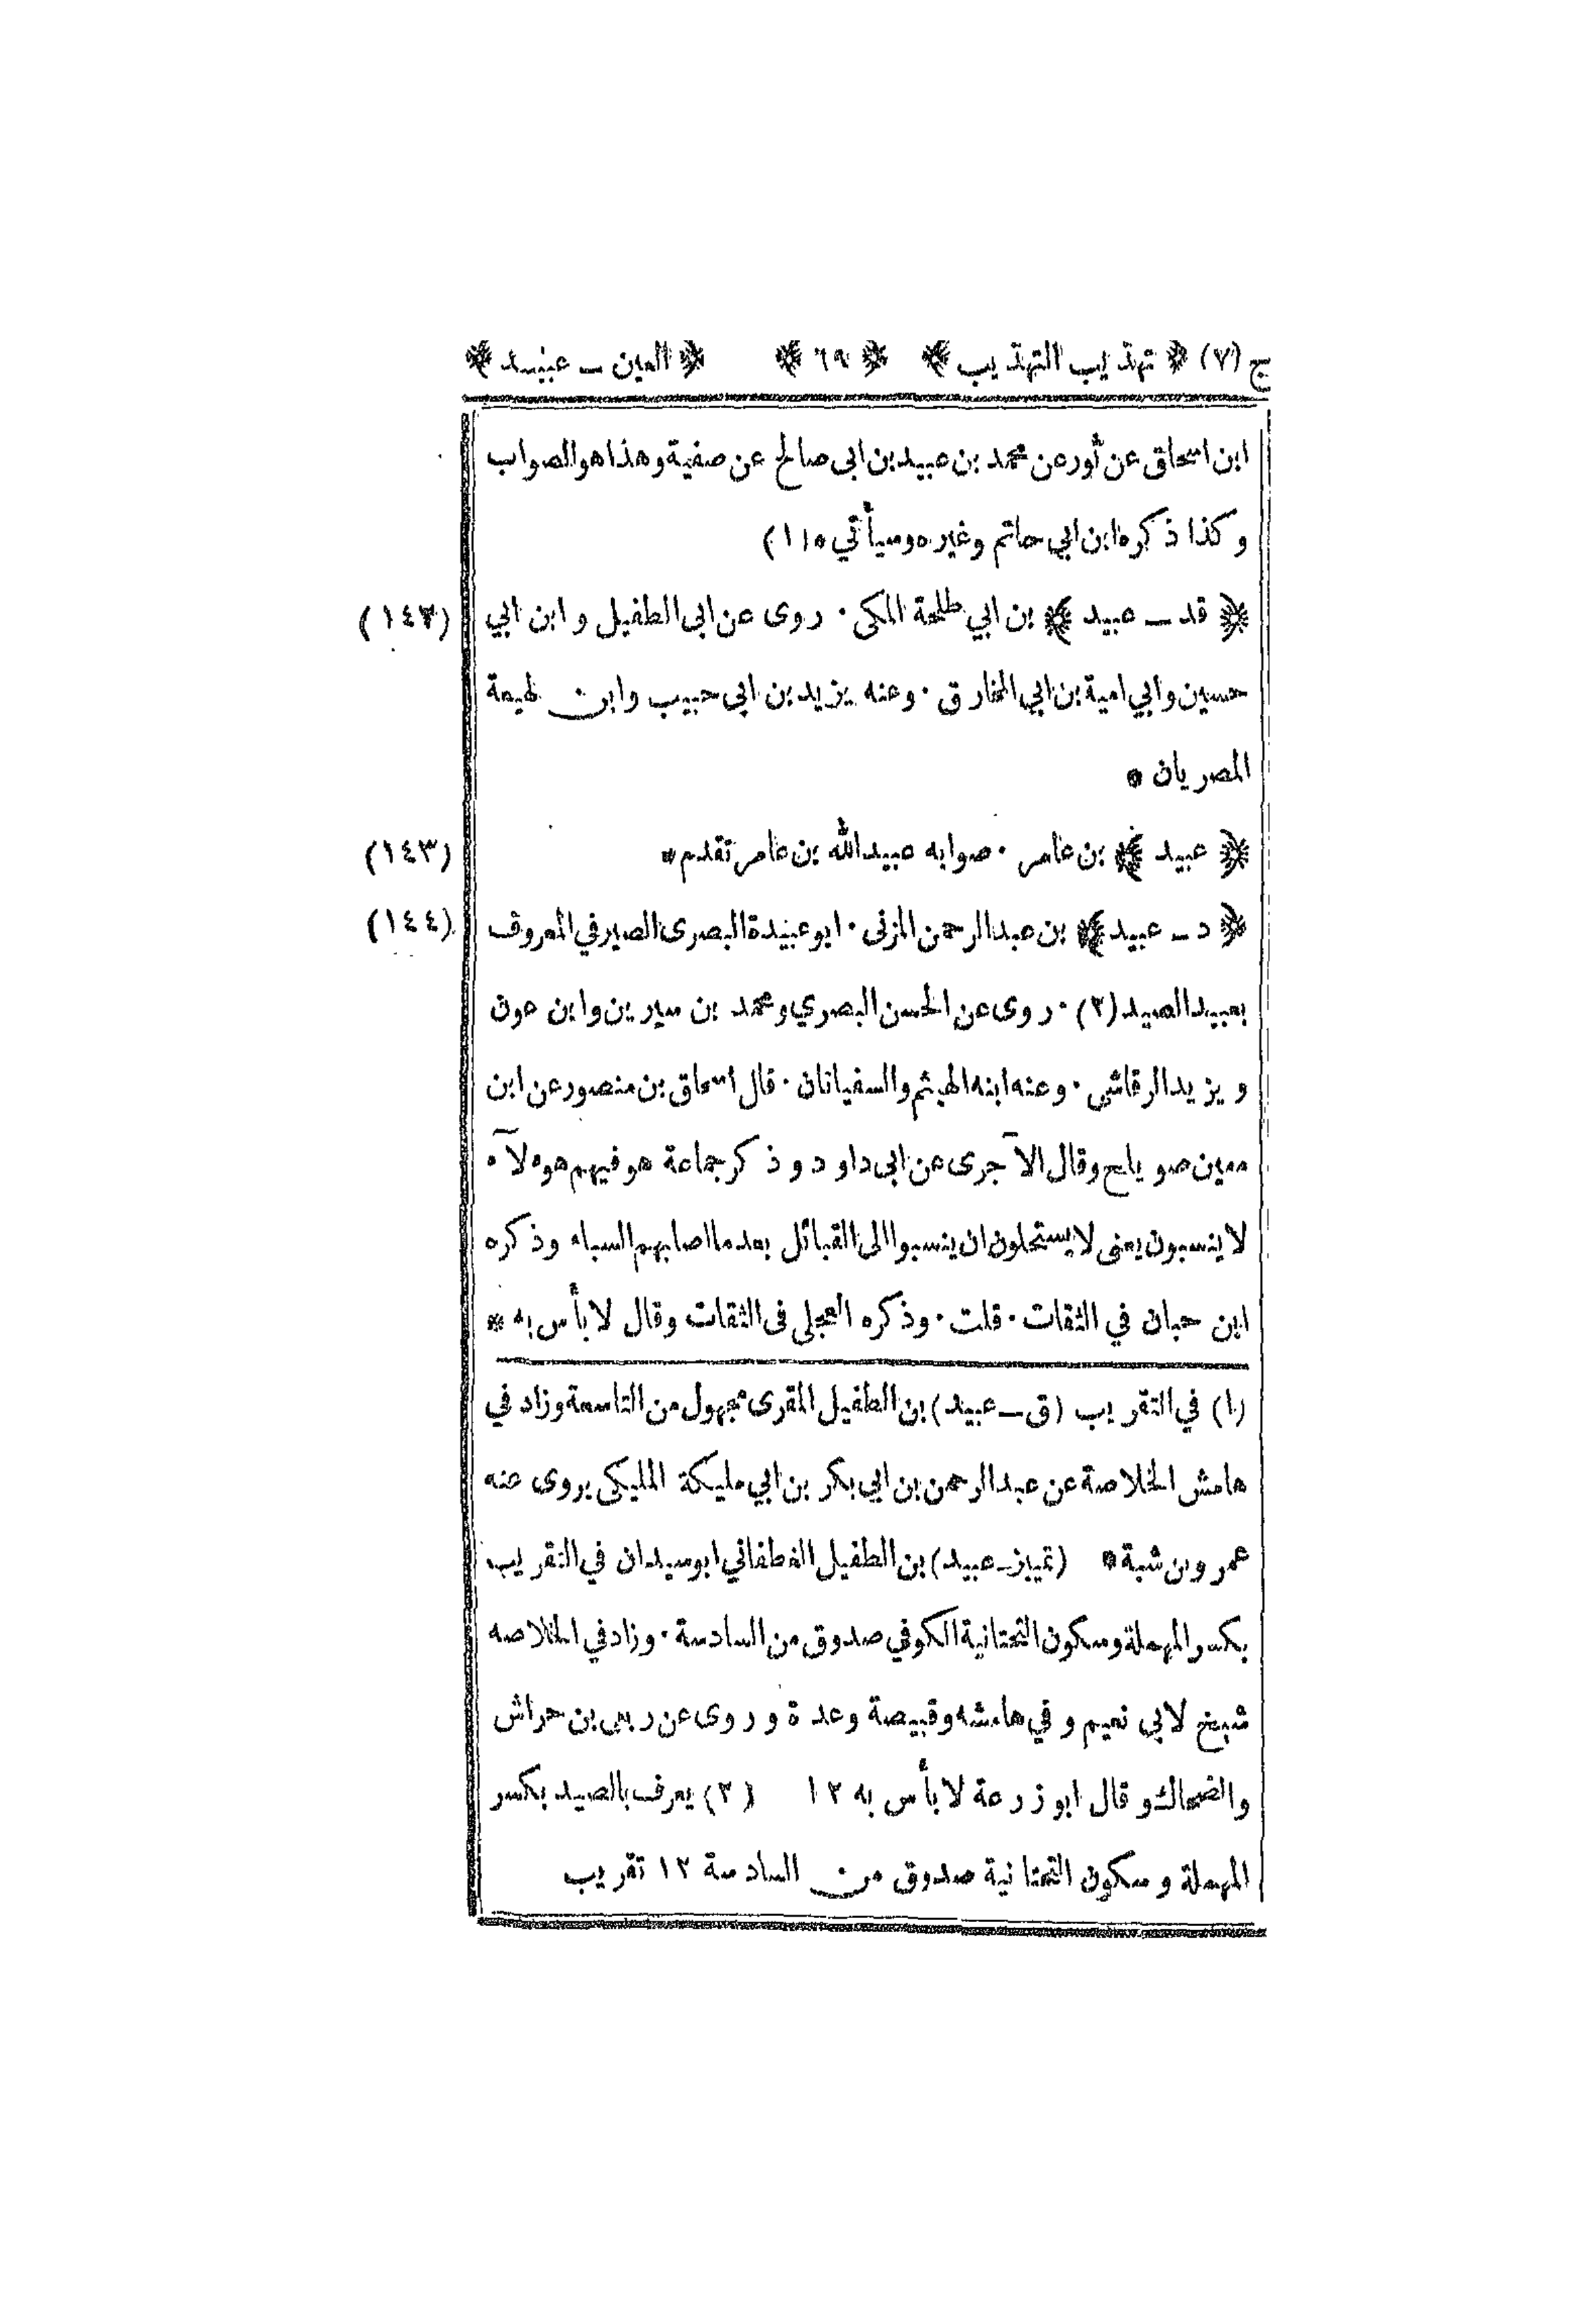 ج (٧) ﴿ تهذيب التهذيب ﴾ ﴿ ٦٩ ﴾ ﴿ العين ــ عبيد ﴾
ابن اسحاق عن ثور عن محمد بن عبيد بن ابى صالح عن صفية وهذا هو الصواب
وكذا ذكره ابن ابي حاتم وغيره وسيأتي * (١)
﴿ قد ــ عبيد ﴾ بن ابي طلحة المكى · روى عن ابى الطفيل وابن ابي (١٤٢)
حسين وابي امية بن ابي المخارق · وعنه يزيد بن ابى حبيب وابن لهيعة
المصريان *
﴿ عبيد ﴾ بن عامر · صوابه عبيد الله بن عامر تقدم * (١٤٣)
﴿ د ــ عبيد ﴾ بن عبد الرحمن المزنى · ابو عبيدة البصرى الصيرفي المعروف (١٤٤)
بعبيد الصيد (٢) · روى عن الحسن البصري ومحمد بن سيرين وابن عون
ويزيد الرقاشي · وعنه ابنه الهيثم والسفيانان · قال اسحاق بن منصور عن ابن
معين صويلح وقال الآجرى عن ابى داود وذكر جماعة هو فيهم هوءلآء
لا ينسبون يعنى لا يستحلون ان ينسبوا الى القبائل بعد ما اصابهم السباء وذكره
ابن حبان في الثقات · قلت · وذكره العجلى فى الثقات وقال لا بأس به *
(١) في التقريب (ق ــ عبيد) بن الطفيل المقرى مجهول من التاسعة وزاد في
هامش الخلاصة عن عبد الرحمن بن ابي بكر بن ابي مليكة المليكى يروى عنه
عمر وبن شبة * (تمييز ـ عبيد) بن الطفيل الغطفاني ابو سيدان في التقريب
بكسر المهملة وسكون التحتانية الكوفي صدوق من السادسة · وزاد في الخلاصه
شيخ لابي نعيم وفي هامشه وقبيصة وعدة وروى عن ربعى بن حراش
والضحاك وقال ابو زرعة لا بأس به ١٢ (٢) يعرف بالصيد بكسر
المهملة وسكون التحتانية صدوق من السادسة ١٢ تقريب